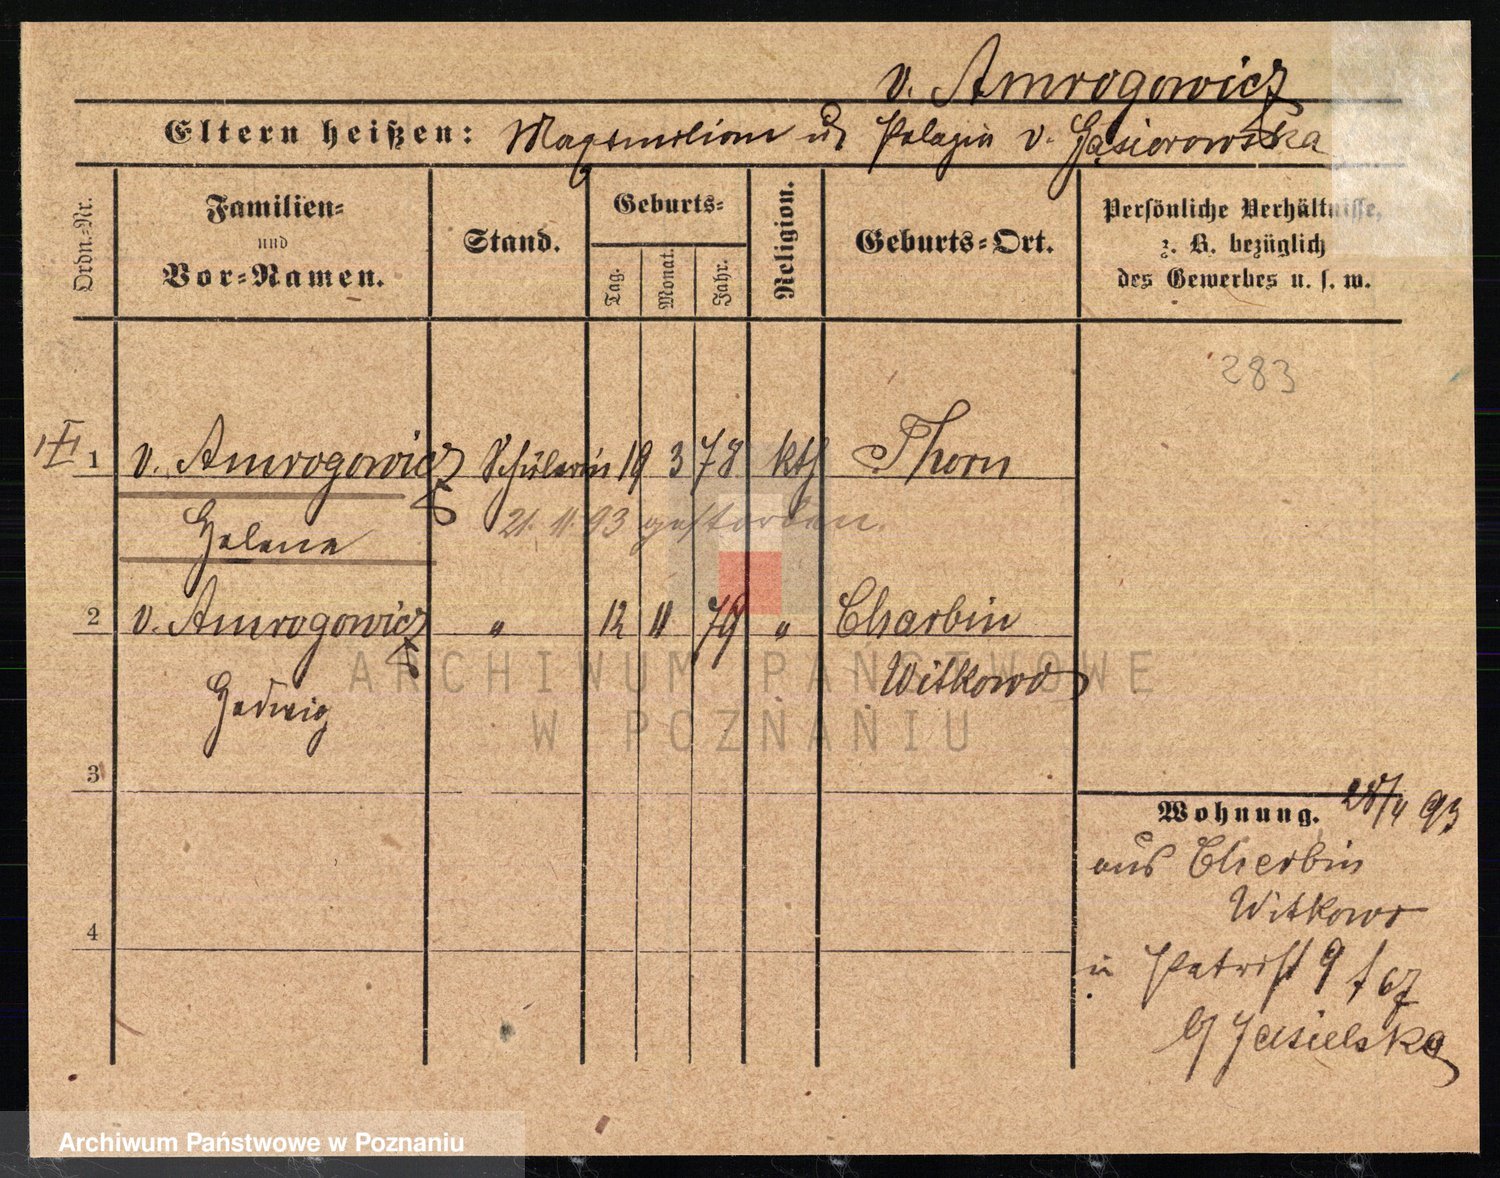 v. Amrogowicz
Eltern heißen: Maxymilian u Pelagia v. Gąsiorowska
Ordn.-Nr.
Familien-
und
Vor-Namen.
Stand.
Geburts-
Tag.
Monat.
Jahr.
Religion.
Geburts-Ort.
Persönliche Verhältnisse,
z. B. bezüglich
des Gewerbes u. s. w.
283
1 v. Amrogowicz Schülerin 19 3 78 kth Thorn
Helena
21. 11. 93 gestorben.
2 v. Amrogowicz " 12 11 79 " Charbin
Witkowo
Hedwig
3
4
Wohnung. 28/4 93
aus Charbin
Witkowo
n Petrist 9
b/ Jasielska
ARCHIWUM PAŃSTWOWE
W POZNANIU
Archiwum Państwowe w Poznaniu